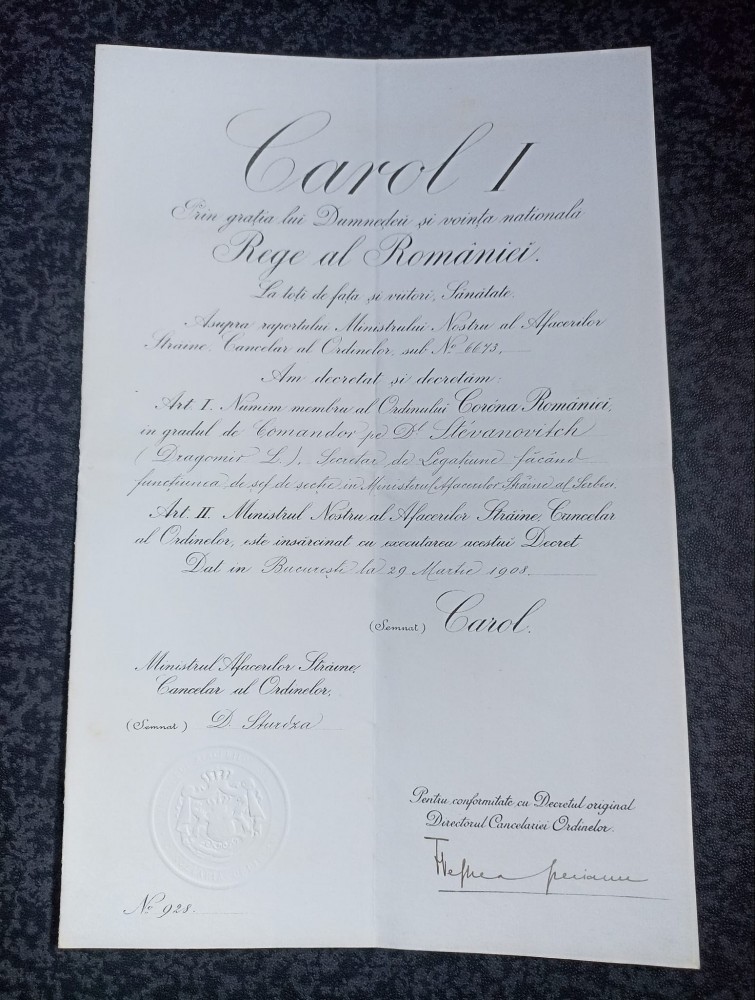 Carol I
Prin grația lui Dumnedeu și voința natională
Rege al României.
La toți de față și viitori, Sănătate.
Asupra raportului Ministrului Nostru al Afacerilor
Străine, Cancelar al Ordinelor, sub No 6673,
Am decretat și decretăm:
Art. I. Numim membru al Ordinului Coróna României,
in gradul de Comandor pe Dl Stévanovitch
(Dragomir L.), Secretar de Legațiune făcând
funcțiunea de șef de secție in Ministerul Afacerilor Străine al Serbiei.
Art. II. Ministrul Nostru al Afacerilor Străine, Cancelar
al Ordinelor, este insărcinat cu executarea acestui Decret
Dat in București la 29 Martie 1908.
(Semnat) Carol.
Ministrul Afacerilor Străine,
Cancelar al Ordinelor,
(Semnat) D. Sturdza
Pentru conformitate cu Decretul original
Directorul Cancelariei Ordinelor.
No 928.